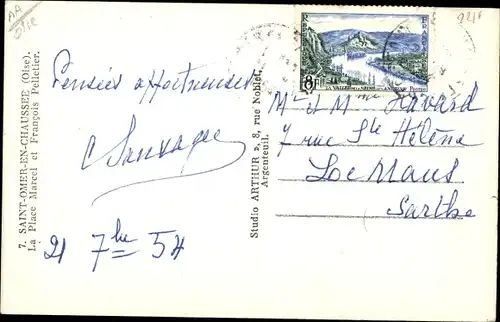 AA
Oise
Pensées affectueuses
C Sauvage
21 7bre 54
7. SAINT-OMER-EN-CHAUSSÉE (Oise).
La Place Marcel et François Pelletier.
Studio ARTHUR », 8, rue Noblet,
Argenteuil.
FRANCE
8F
LA VALLÉE DE LA SEINE AUX ANDELYS
Mr et M Havard
7 rue Ste Hélène
Le Mans
Sarthe